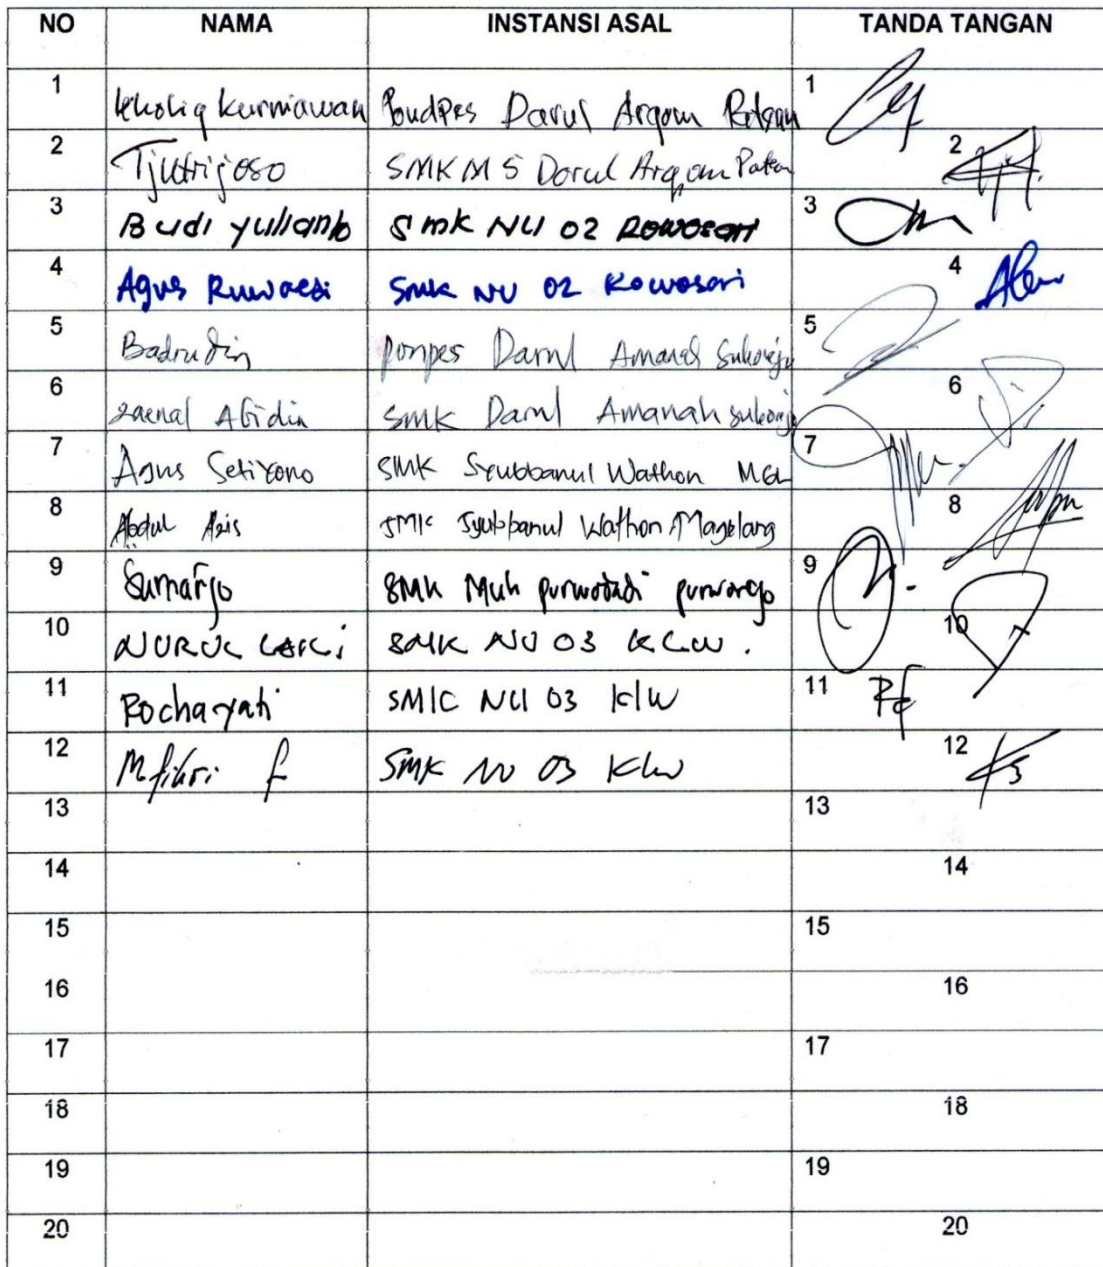 NO NAMA INSTANSI ASAL TANDA TANGAN
1 Kholiq Kurniawan Darul Arqom 1
2 SMK M 5 Darul Arqom 2
3 Budi Yulianto SMK NU 02 Rowosari 3
4 Agus SMK NU 02 Rowosari 4
5 Badrudin Ponpes Darul Amanah Sukorejo 5
6 Zaenal Abidin SMK Darul Amanah Sukorejo 6
7 Agus Setiyono SMK Syubbanul Wathon 7
8 Abdul Azis SMK Syubbanul Wathon Magelang 8
9 Sumarjo SMK Muh Purwodadi Purworejo 9
10 NURUL SMK NU 03 KLW. 10
11 Rocharyati SMK NU 03 KLW 11
12 M fikri f SMK NU 03 Klw 12
13 13
14 14
15 15
16 16
17 17
18 18
19 19
20 20